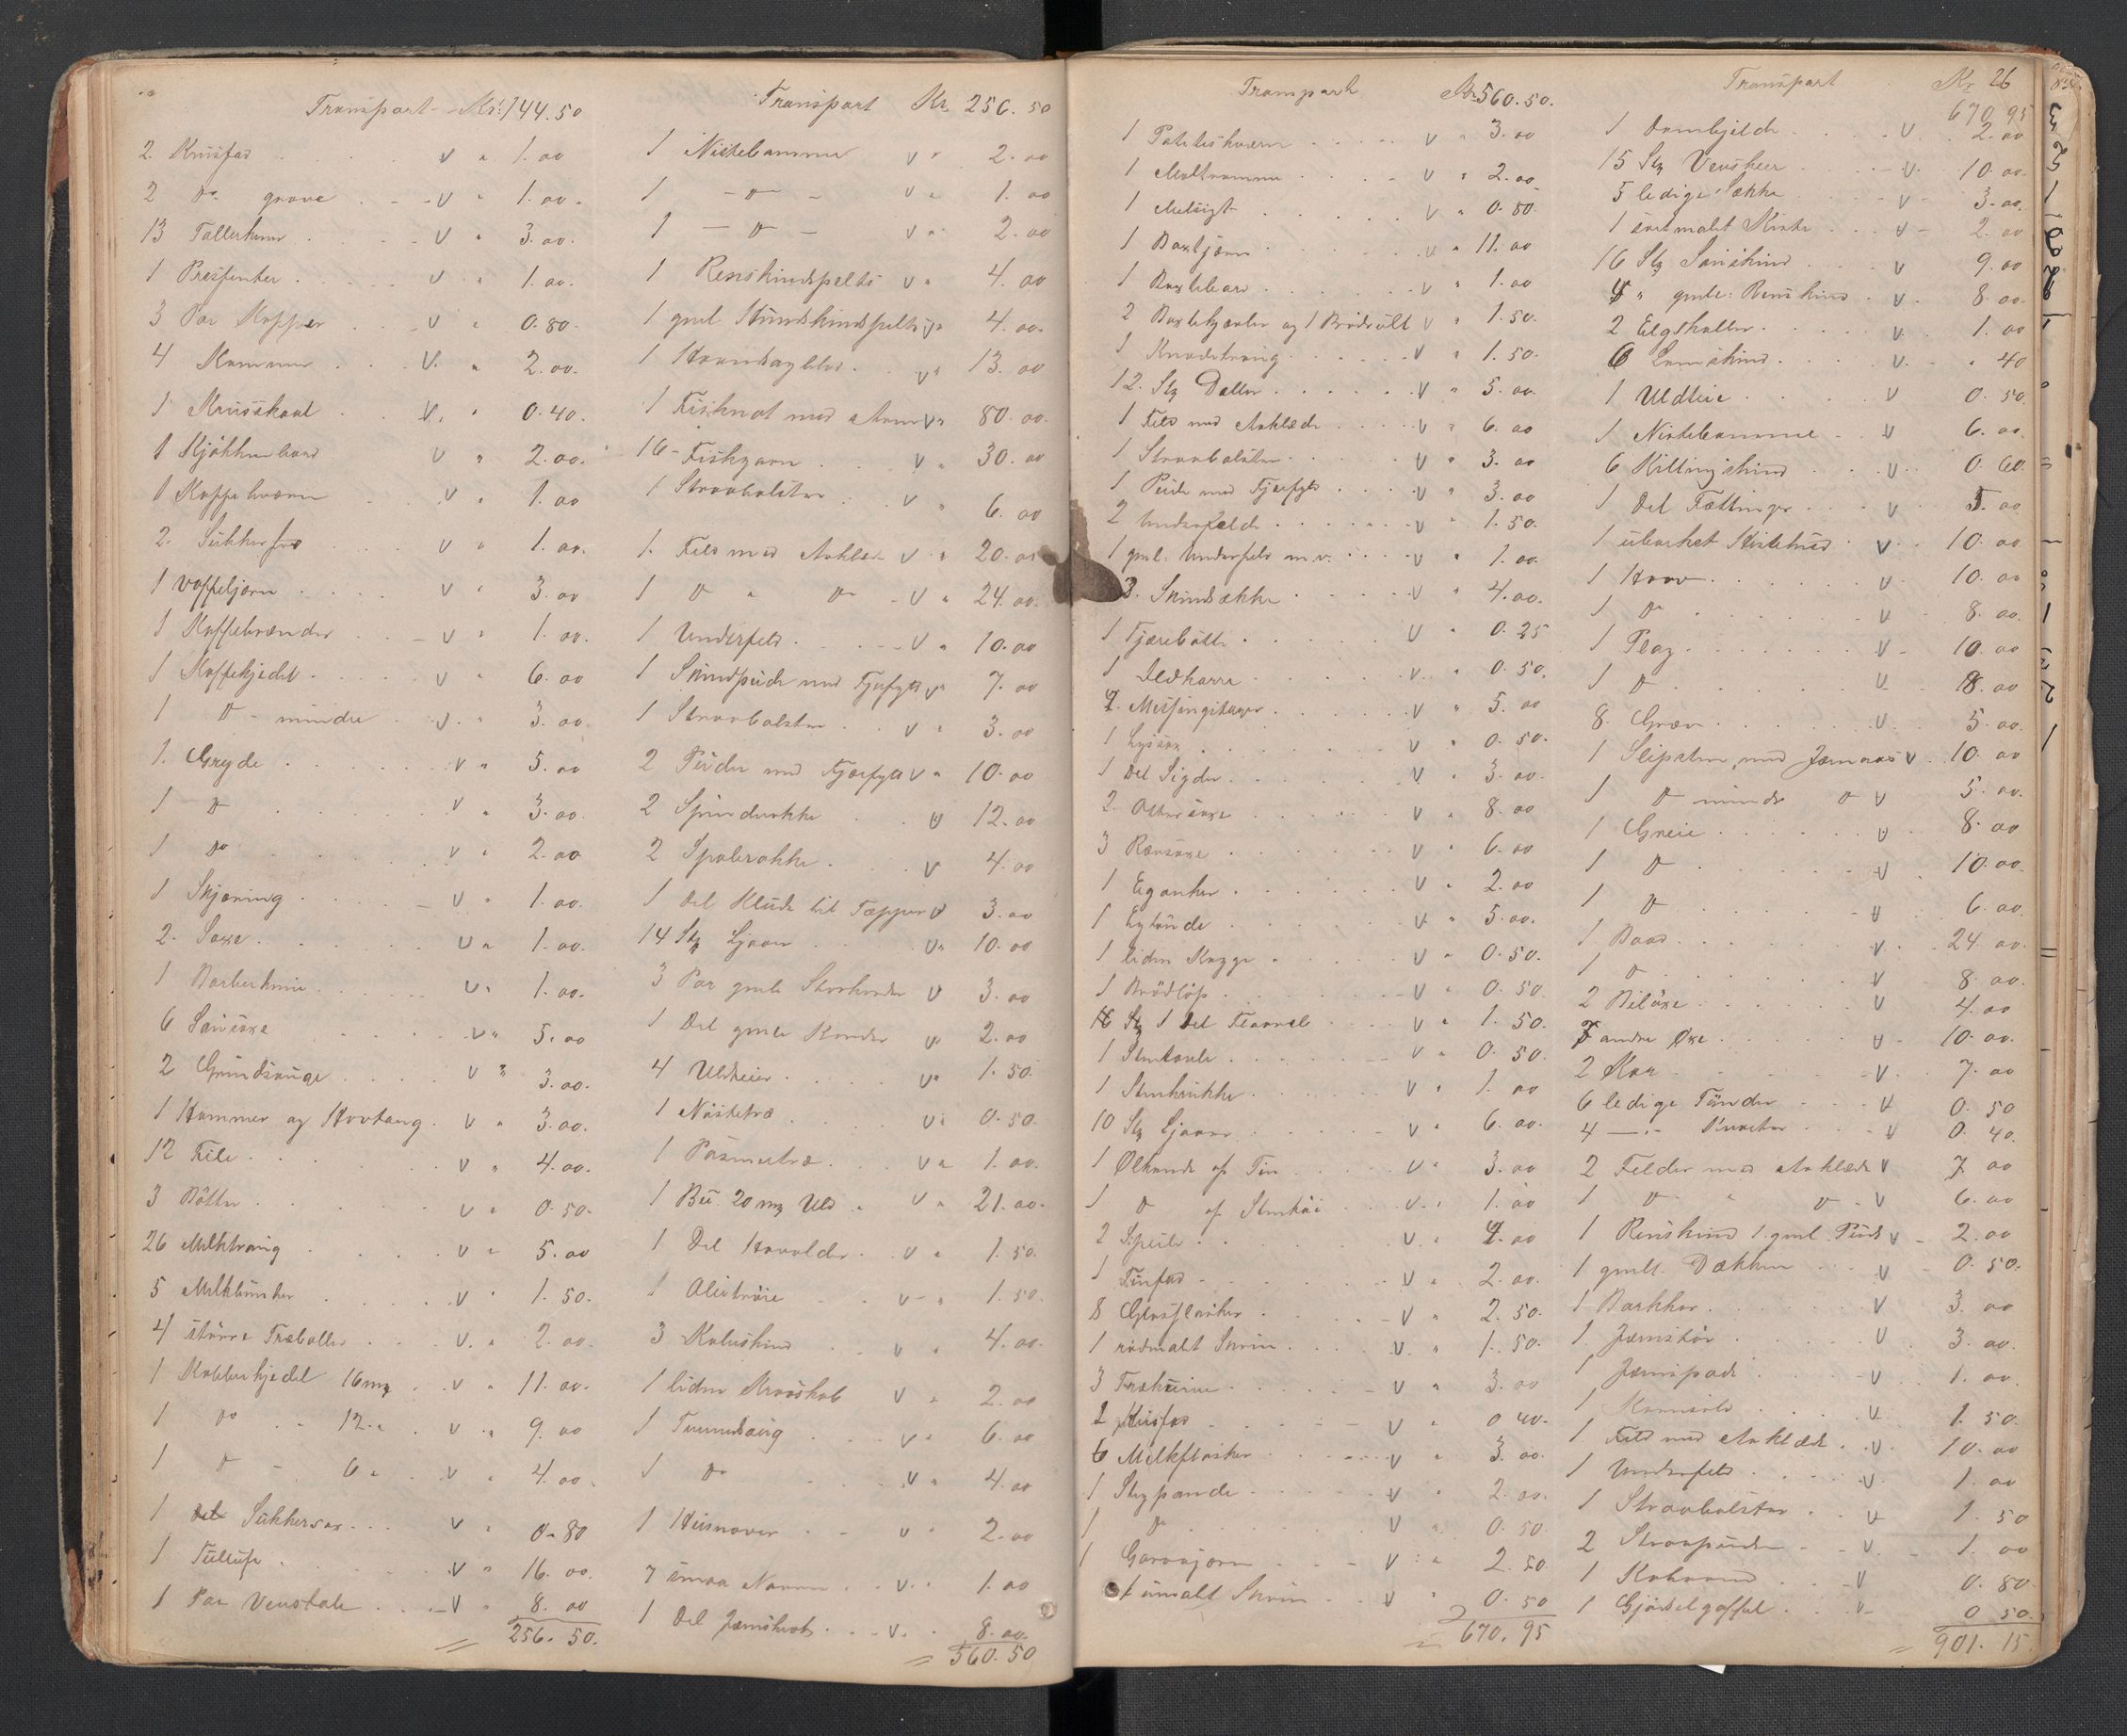 Transport Kr. 144.50
2 Krusfad v " 1.00
2 do grove v " 1.00
13 Tallerkener v " 3.00
1 Presenter v " 1.00
3 Par Kopper v " 0.80
4 Kummer v " 2.00
1 Krusskaal v " 0.40
1 Kjøkkenbord v " 2.00
1 Kaffekværn v " 1.00
2 Sukkerfad v " 1.00
1 Vaffeljærn v " 3.00
1 Kaffebrænder v " 1.00
1 Kaffekjedel v " 6.00
1 do mindre v " 3.00
1 Gryde v " 5.00
1 do v " 3.00
1 do v " 2.00
1 Skjæring v " 1.00
2 Saxe v " 1.00
1 Barberkniv v " 1.00
6 Sausaxe v " 5.00
2 Grindsauge v " 3.00
1 Hammer og Hovtang v " 3.00
12 File v " 4.00
3 Bøtter v " 0.50
26 Melktraug v " 5.00
5 Melkbunker v " 1.50
4 større Træboller v " 2.00
1 Kobberkjedel 16 mk v " 11.00
1 do 12 " v " 9.00
1 do 6 " v " 4.00
1 del Sukkersax v " 0.80
1 Tullufe v " 16.00
1 Par Venstole v " 8.00
256.50
Transport Kr. 256.50
1 Nistebomme v " 2.00
1 - do - v " 1.00
1 - do - v " 2.00
1 Renskindspelts v " 4.00
1 gml Hundskindspelts v " 4.00
1 v " 13.00
1 Fiskenot med v " 80.00
16 Fiskegarn v " 30.00
1 Straabolster v " 6.00
1 Feld med Aaklæde v " 20.00
1 do " do v " 24.00
1 Underfeld v " 10.00
1 Skindpude med Fjærfyld v " 7.00
1 Straabolster v " 3.00
2 Puder med Fjærfyld v " 10.00
2 Spinderokke v 12.00
2 Spolerokke v 4.00
1 Del Klude til Tæpper v 3.00
14 Stk Ljaaer v " 10.00
3 Par gmle v 3.00
1 Del gmle v 2.00
4 Uldteier v " 1.50
1 Nøstetræ v " 0.50
1 Pasmetræ v " 1.00
1 Bu 20 mk Uld v " 21.00
1 Del Hovolder v " 1.50
1 v " 1.50
3 Kalvskind v " 4.00
1 liden Kroskab v " 2.00
1 Tømmersaug v " 6.00
1 do v " 4.00
1 Husnaver v " 2.00
7 smaa Navrer v " 1.00
1 Del Jærnskrot v " 8.00
560.50
Transport Kr. 560.50
1 Poteteskværn v " 3.00
1 Maltromme v " 2.00
1 Melsigt v " 0.80
1 Baxtjærn v " 11.00
1 Baxtebord v " 1.00
2 Baxtekjævler og 1 Brødrull v " 1.50
1 Knadetraug v " 1.50
12 Stk Daller v " 5.00
1 Feld med Aaklæde v " 6.00
1 Straabolster v " 3.00
1 Pude med Fjærfyld v " 3.00
2 Underfelde v " 1.50
1 gml. Underfeld m.v. v " 1.00
3 Skindsække v " 4.00
1 Tjærebøtte v " 0.25
1 Ildkarre v " 0.50
2 Messingstager v " 5.00
1 Lysesax v " 0.50
1 Del Sigder v " 3.00
2 Ottersaxe v " 8.00
3 Rævsaxe v " 6.00
1 Eganker v " 2.00
1 Egtønde v " 5.00
1 liden Kagge v " 0.50
1 Brødløp v " 0.50
16 Stk 1 Del v " 1.50
1 v " 0.50
1 Stenkrukke v " 1.00
10 Stk Ljaaer v " 6.00
1 Ølkande af Tin v " 3.00
1 do af Stentøi v " 1.00
2 Speile v " 4.00
1 Tinfad v " 2.00
8 Glasflasker v " 2.50
1 rødmalt Skrin v " 1.50
3 v " 3.00
2 Krusfad v " 0.40
6 Melkflasker v " 3.00
1 Stegpande v " 2.00
1 do v " 0.50
1 Gorojærn v " 2.50
1 umalt Skrin v " 0.50
670.95
Transport Kr. 670.95
26
1 Dombjelde v 2.00
15 Stk v 10.00
5 ledige Sække v 3.00
1 sortmalt Kiste v 2.00
16 Stk Sauskind v 9.00
4 " gmle Renskind v 8.00
2 Elgskaller v 1.00
6 Lamskind v " 40
1 Uldteie v 0.50
1 Nistebomme v 6.00
6 Killingskind v 0.60
1 Del Fættinger v 5.00
1 ubarket Størhud v 10.00
1 Harv v 10.00
1 do v 8.00
1 Plog v 10.00
1 do v 18.00
8 Græv v 5.00
1 Slipesten med Jærnaas v 10.00
1 do mindre do v 5.00
1 Greie v 8.00
1 do v 10.00
1 do v 6.00
1 Baad v 24.00
1 do v 8.00
2 Biløxe v 4.00
7 andre Øxe v 10.00
2 Kar v 7.00
6 ledige Tønder v 0.50
4 -"- v 0.40
2 Felder med Aaklæde v 7.00
1 do " do v 6.00
1 Renskind 1 gml Pude v 2.00
1 gmlt. Dækken v 0.50
1 Barkkar v 3.00
1 Jærnstør v 3.00
1 Jærnspade v 1.00
1 Kornsold v 1.50
1 Feld med Aaklæde v 10.00
1 Underfeld v 1.00
1 Straabolster v 1.50
2 Straapuder v 1.00
1 v 0.80
1 Gjødselgaffel v 0.50
901.15